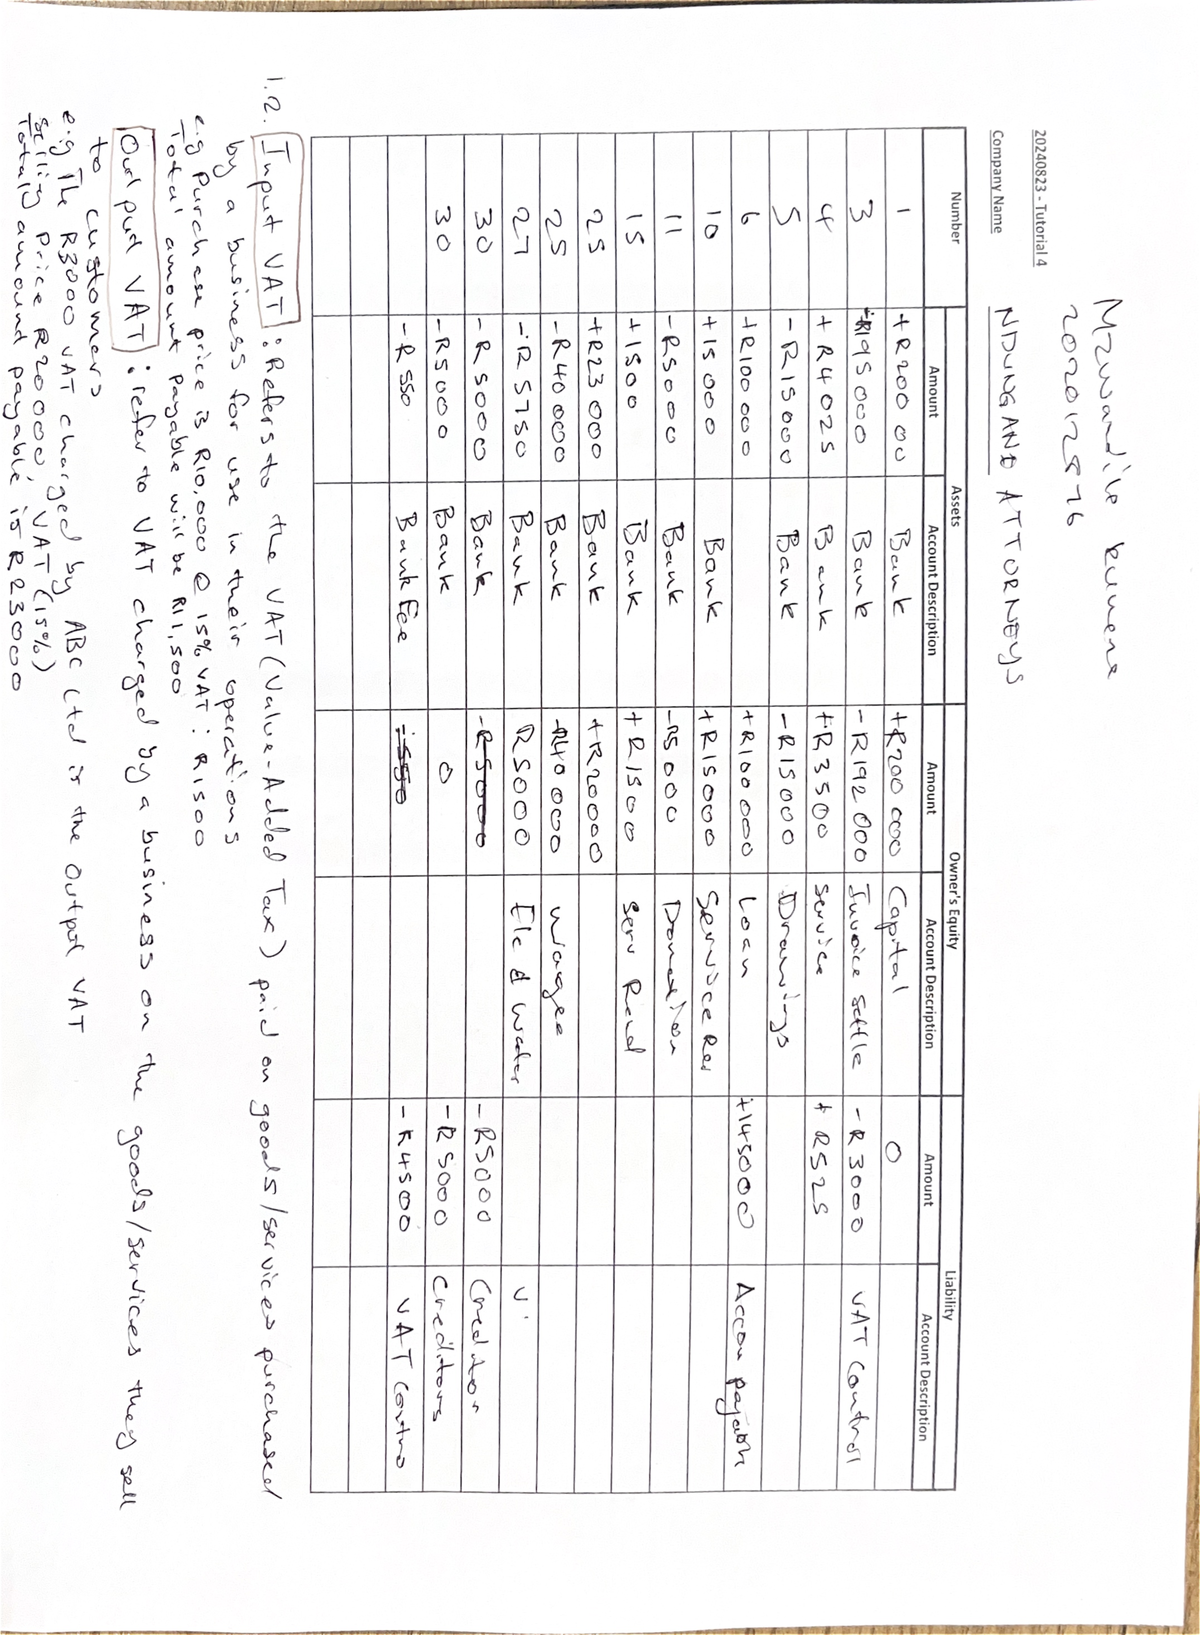 Mzwandile Kunene
2020125876
20240823 - Tutorial 4
Company Name NDUNGANE ATTORNEYS
Assets Owner's Equity Liability
Number Amount Account Description Amount Account Description Amount Account Description
1 +R200 00 Bank +R200 000 Capital 0
3 -R195000 Bank -R192 000 Invoice Settle -R3000 VAT Control
4 +R4025 Bank +R3500 Service +R525
5 -R15000 Bank -R15000 Drawings
6 +R100 000 +R100 000 Loan +145000 Accou payable
10 +15 000 Bank +R15000 Service Rei
11 -R5000 Bank -R5000 Donation
15 +1500 Bank +R1500 Serv Rend
25 +R23 000 Bank +R20000
25 -R40 000 Bank -R40 000 Wages
27 -R 5750 Bank R5000 Ele & Water
30 -R 5000 Bank -R5000 -R5000 Creditor
30 -R5000 Bank 0 -R5000 Creditors
-R 550 Bank Fee -550 -R4500 VAT Contro
1.2. Input VAT : Refers to the VAT (Value-Added Tax) paid on goods/services purchased
by a business for use in their operations
e.g Purchase price is R10,000 @ 15% VAT : R1500
Total amount Payable will be R11,500
Output VAT : refer to VAT charged by a business on the goods/services they sell
to customers
e.g The R3000 VAT charged by ABC Ltd is the output VAT
Selling Price R20000, VAT (15%)
Totaly amound payable is R23000